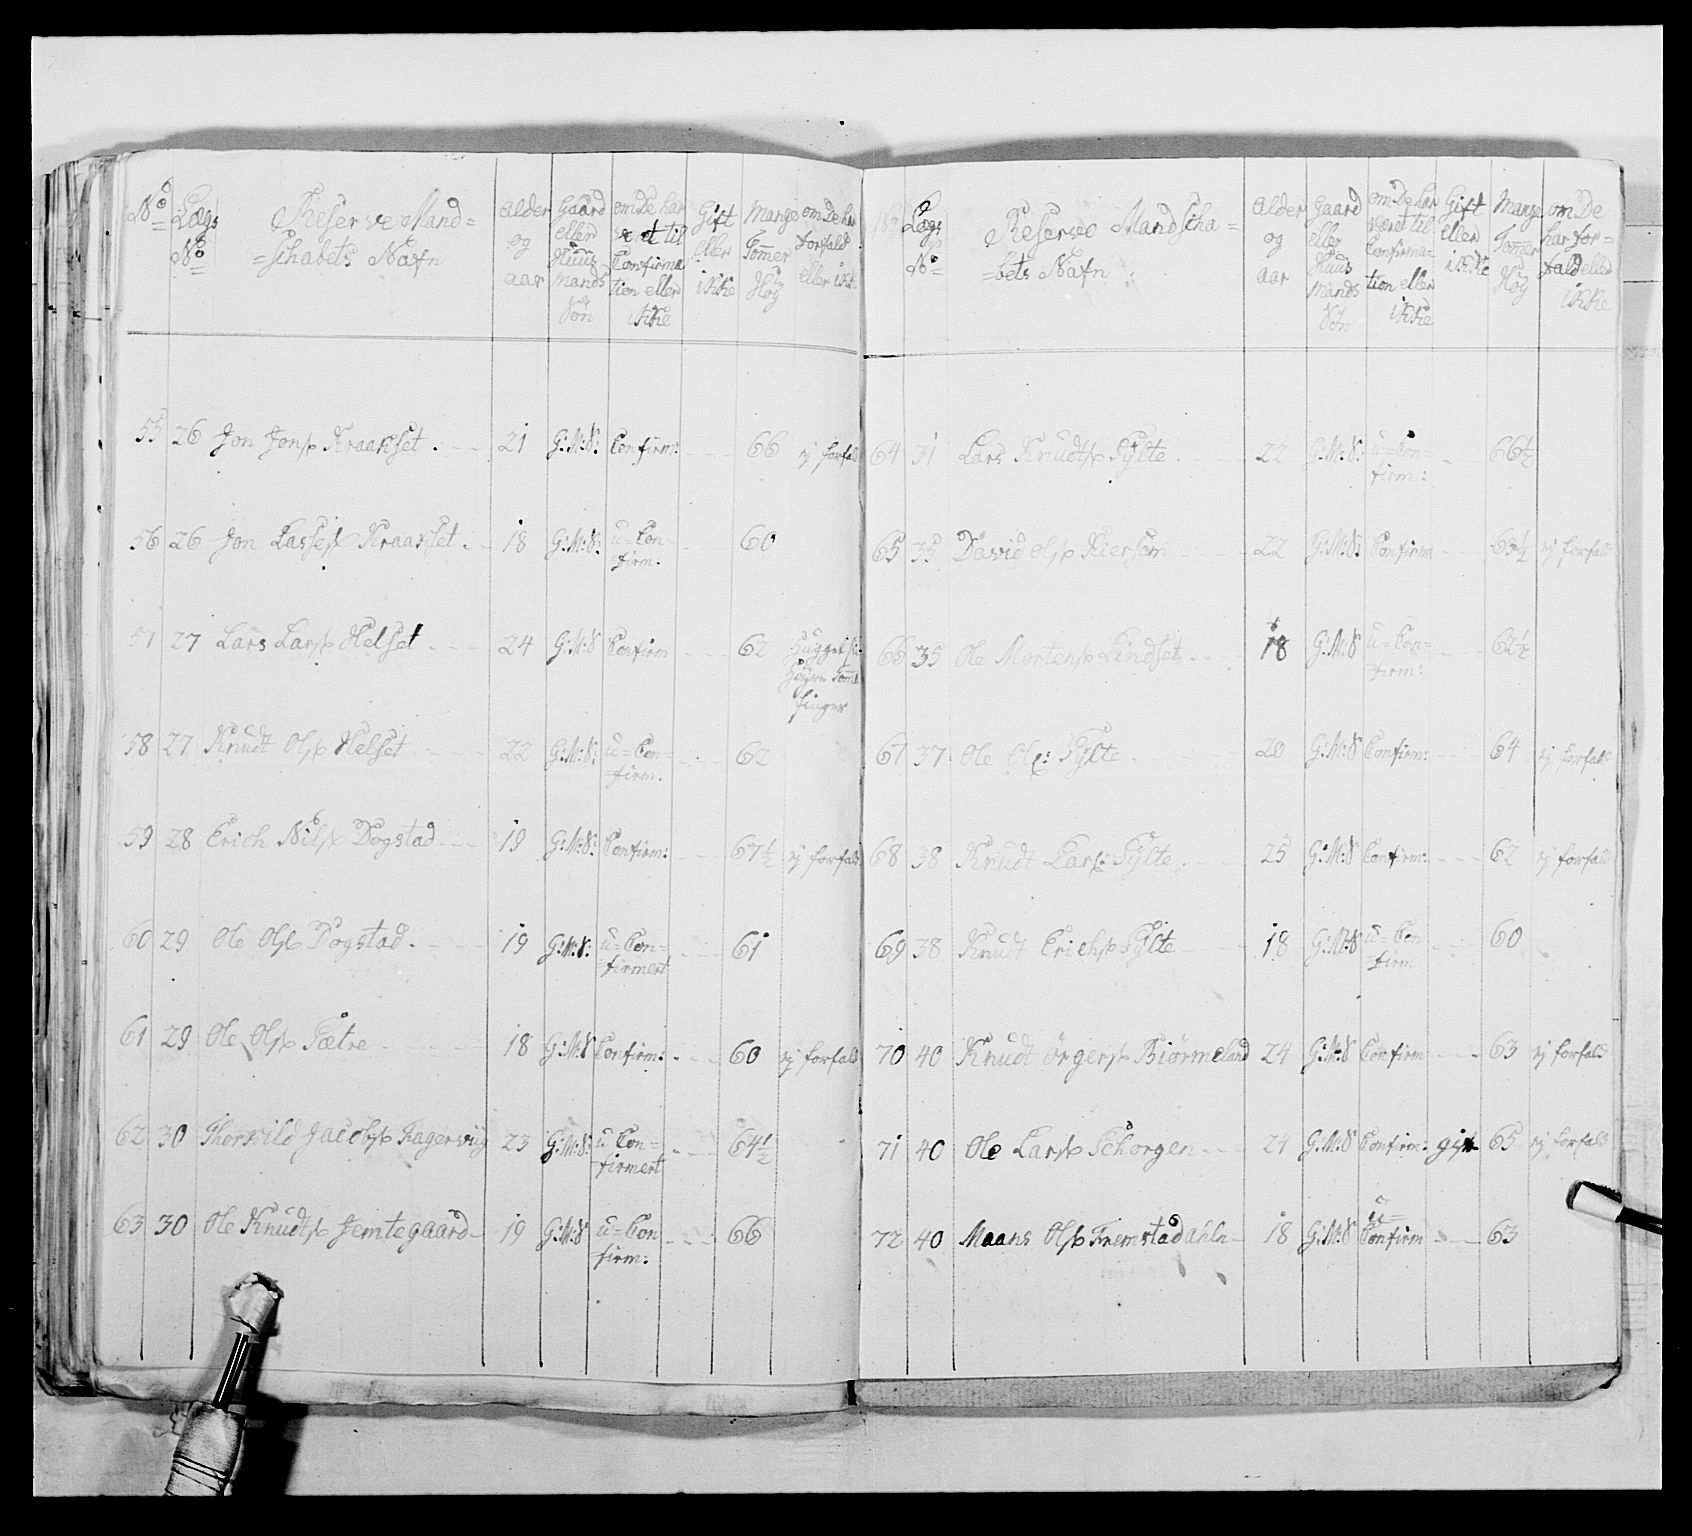 No Lægs No Reserve Mand= =schabets Nafn alder og aar Gaard eller Huus Mands Søn om De har været til Confirma tion eller ikke Gift eller ikke Mange Tommer Høy om De har forfald eller ikke
55 26 Jon Jons: Kraakset . 21 G:M:S: Confirm: 66 ej forfald
56 26 Jon Lasses: Kraakset . 18 G:M:S: u=Con= firm: 60
57 27 Lars Lars: Helset . 24 G:M:S Confirm 62 Hugget finger
58 27 Knudt Ols: Helset 22 G:M:S: u=Con= firm: 62
59 28 Erich Nils: Dogstad 19 G:M:S: Confirm: 67½ ej forfald
60 29 Ole Ols: Dogstad . 19 G:M:S: u=Con= firmert 61
61 29 Ole Ols: Sætre 18 G:M:S Confirm: 60 ej forfald
62 30 Thorvild Jacobs: Fagerviig 23 G:M:S: u Con= firmert 64½
63 30 Ole Knudts: Jemtegaard 19 G:M:S u=Con firm: 66
No Lægs No Reserve Mandscha= =bets Nafn : alder og aar Gaard eller Huus Mands Søn om De har været til Confirma= tion eller ikke Gift eller ikke Mange Tommer Høy om De har for= fald eller ikke
64 31 Lars Knudts: Sylte . 22 G:M:S: u=Con= firm: 66½
65 35 David Ols: Kiersem 22 G:M:S: Confirm 63½ ej forfald
66 35 Ole Mortens: Lindset 18 G:M:S u=Con= firm: 62½
67 37 Ole Ols: Sylte . 20 G:M:S Confirm: 64 ej forfald
68 38 Knudt Lars: Sylte . 25 G:M:S Confirm: 62 ej forfald
69 38 Knudt Erichs: Sylte 18 G:M:S u=Con =firm 60
70 40 Knudt Örgers: Biørmeland 24 G:M:S Confirm 63 ej forfald
71 40 Ole Lars: Schorgen 24 G:M:S Confirm: gift 65 ej forfald
72 40 Maans Ols: Fremstadahln 18 G:M:S u= Confirm 63